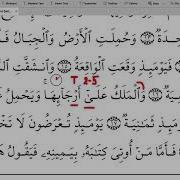 وَحُمِلَتِ ٱلْأَرْضُ وَٱلْجِبَالُ
فَيَوْمَئِذٍ وَقَعَتِ ٱلْوَاقِعَةُ ۝ وَٱنشَقَّتِ
T 2-5
وَٱلْمَلَكُ عَلَىٰٓ أَرْجَآئِهَا وَيَحْمِلُ
ثَمَٰنِيَةٌ ۝ يَوْمَئِذٍ تُعْرَضُونَ لَا
فَأَمَّا مَنْ أُوتِىَ كِتَٰبَهُۥ بِيَمِينِهِۦ فَيَقُولُ